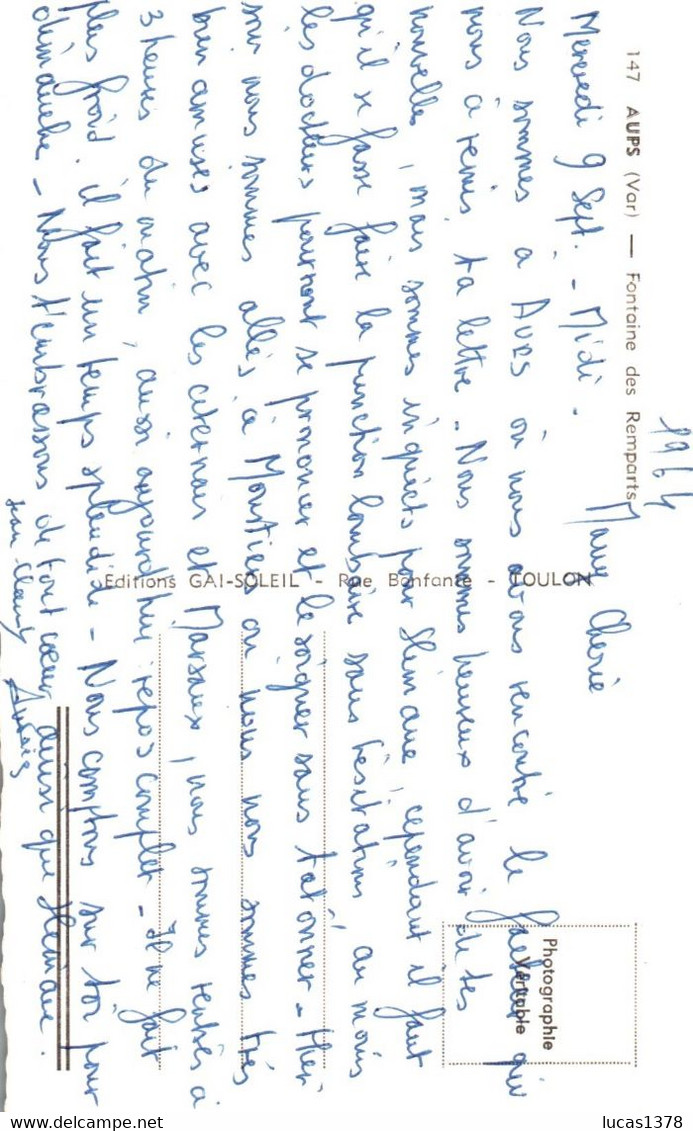 147 AUPS (Var) — Fontaine des Remparts
1964
Mercredi 9 Sept. - Midi -
Mamy Chérie
Nous sommes à AUPS où nous avons rencontré le facteur qui
nous a remis ta lettre - Nous sommes heureux d'avoir de tes
nouvelles, mais sommes inquiets pour Slimane, cependant il faut
qu'il se fasse faire la ponction lombaire sans hésitations au moins
les docteurs pourront se prononcer et le soigner sans tatonner - Hier
soir nous sommes allés à Moustiers où nous nous sommes très
bien amusés avec les et, nous sommes rentrés à
3 heures du matin, aussi aujourd'hui repos complet - Il ne fait
plus froid, il fait un temps splendide - Nous comptons sur toi pour
dimanche - Nous t'embrassons de tout coeur ainsi que Slimane.
Editions GAI-SOLEIL - Rue Bonfante - TOULON
Photographie
Véritable
lucas1378